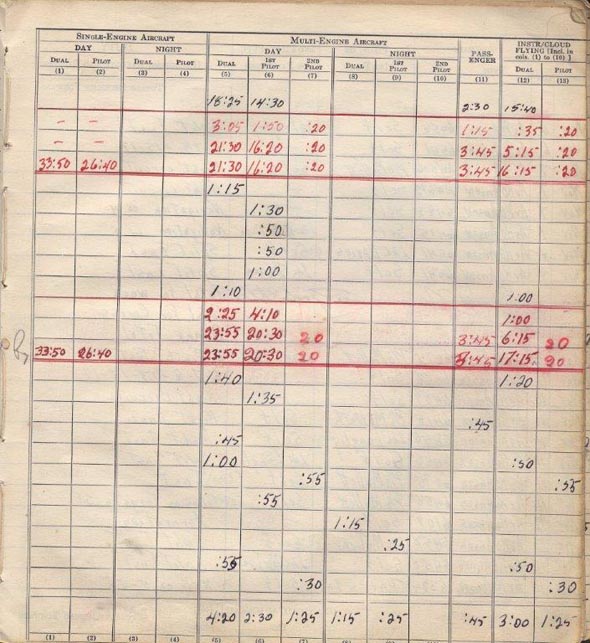 SINGLE-ENGINE AIRCRAFT MULTI-ENGINE AIRCRAFT PASS-ENGER INSTR/CLOUD FLYING [Incl. in cols. (1) to (10) ]
DAY NIGHT DAY NIGHT
DUAL PILOT DUAL PILOT DUAL 1ST PILOT 2ND PILOT DUAL 1ST PILOT 2ND PILOT DUAL PILOT
(1) (2) (3) (4) (5) (6) (7) (8) (9) (10) (11) (12) (13)
18:25 14:30 2:30 15:40
– – 3:05 1:50 :20 1:15 :35 :20
– – 21:30 16:20 :20 3:45 5:15 :20
33:50 26:40 21:30 16:20 :20 3:45 16:15 :20
1:15
1:30
:50
:50
1:00
1:10 1:00
2:25 4:10 1:00
23:55 20:30 20 3:45 6:15 20
33:50 26:40 23:55 20:30 20 3:45 17:15 20
1:40 1:20
1:35
:45
:45
1:00 :50
:55 :55
:55
1:15
:25
:55 :50
:30 :30
4:20 2:30 1:25 1:15 :25 :45 3:00 1:25
(1) (2) (3) (4) (5) (6)